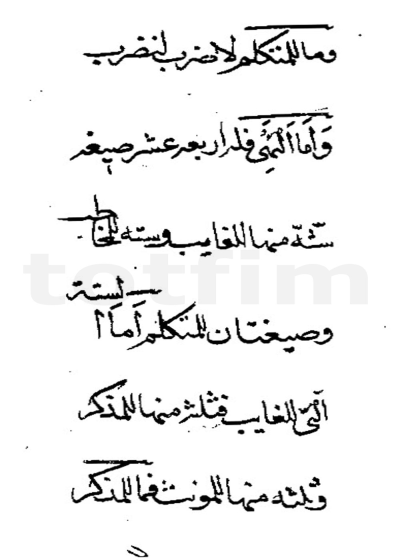 وما للمتكلم لا ضرب لنضرب
واما النهى فله اربعه عشر صيغه
ستّه منها للغايب وسته للمخاطب
وصيغتان للمتكلم اما الستة
التى للغايب فثلثه منها للمذكر
وثلثه منها للمونث فما للمذكر
totfim